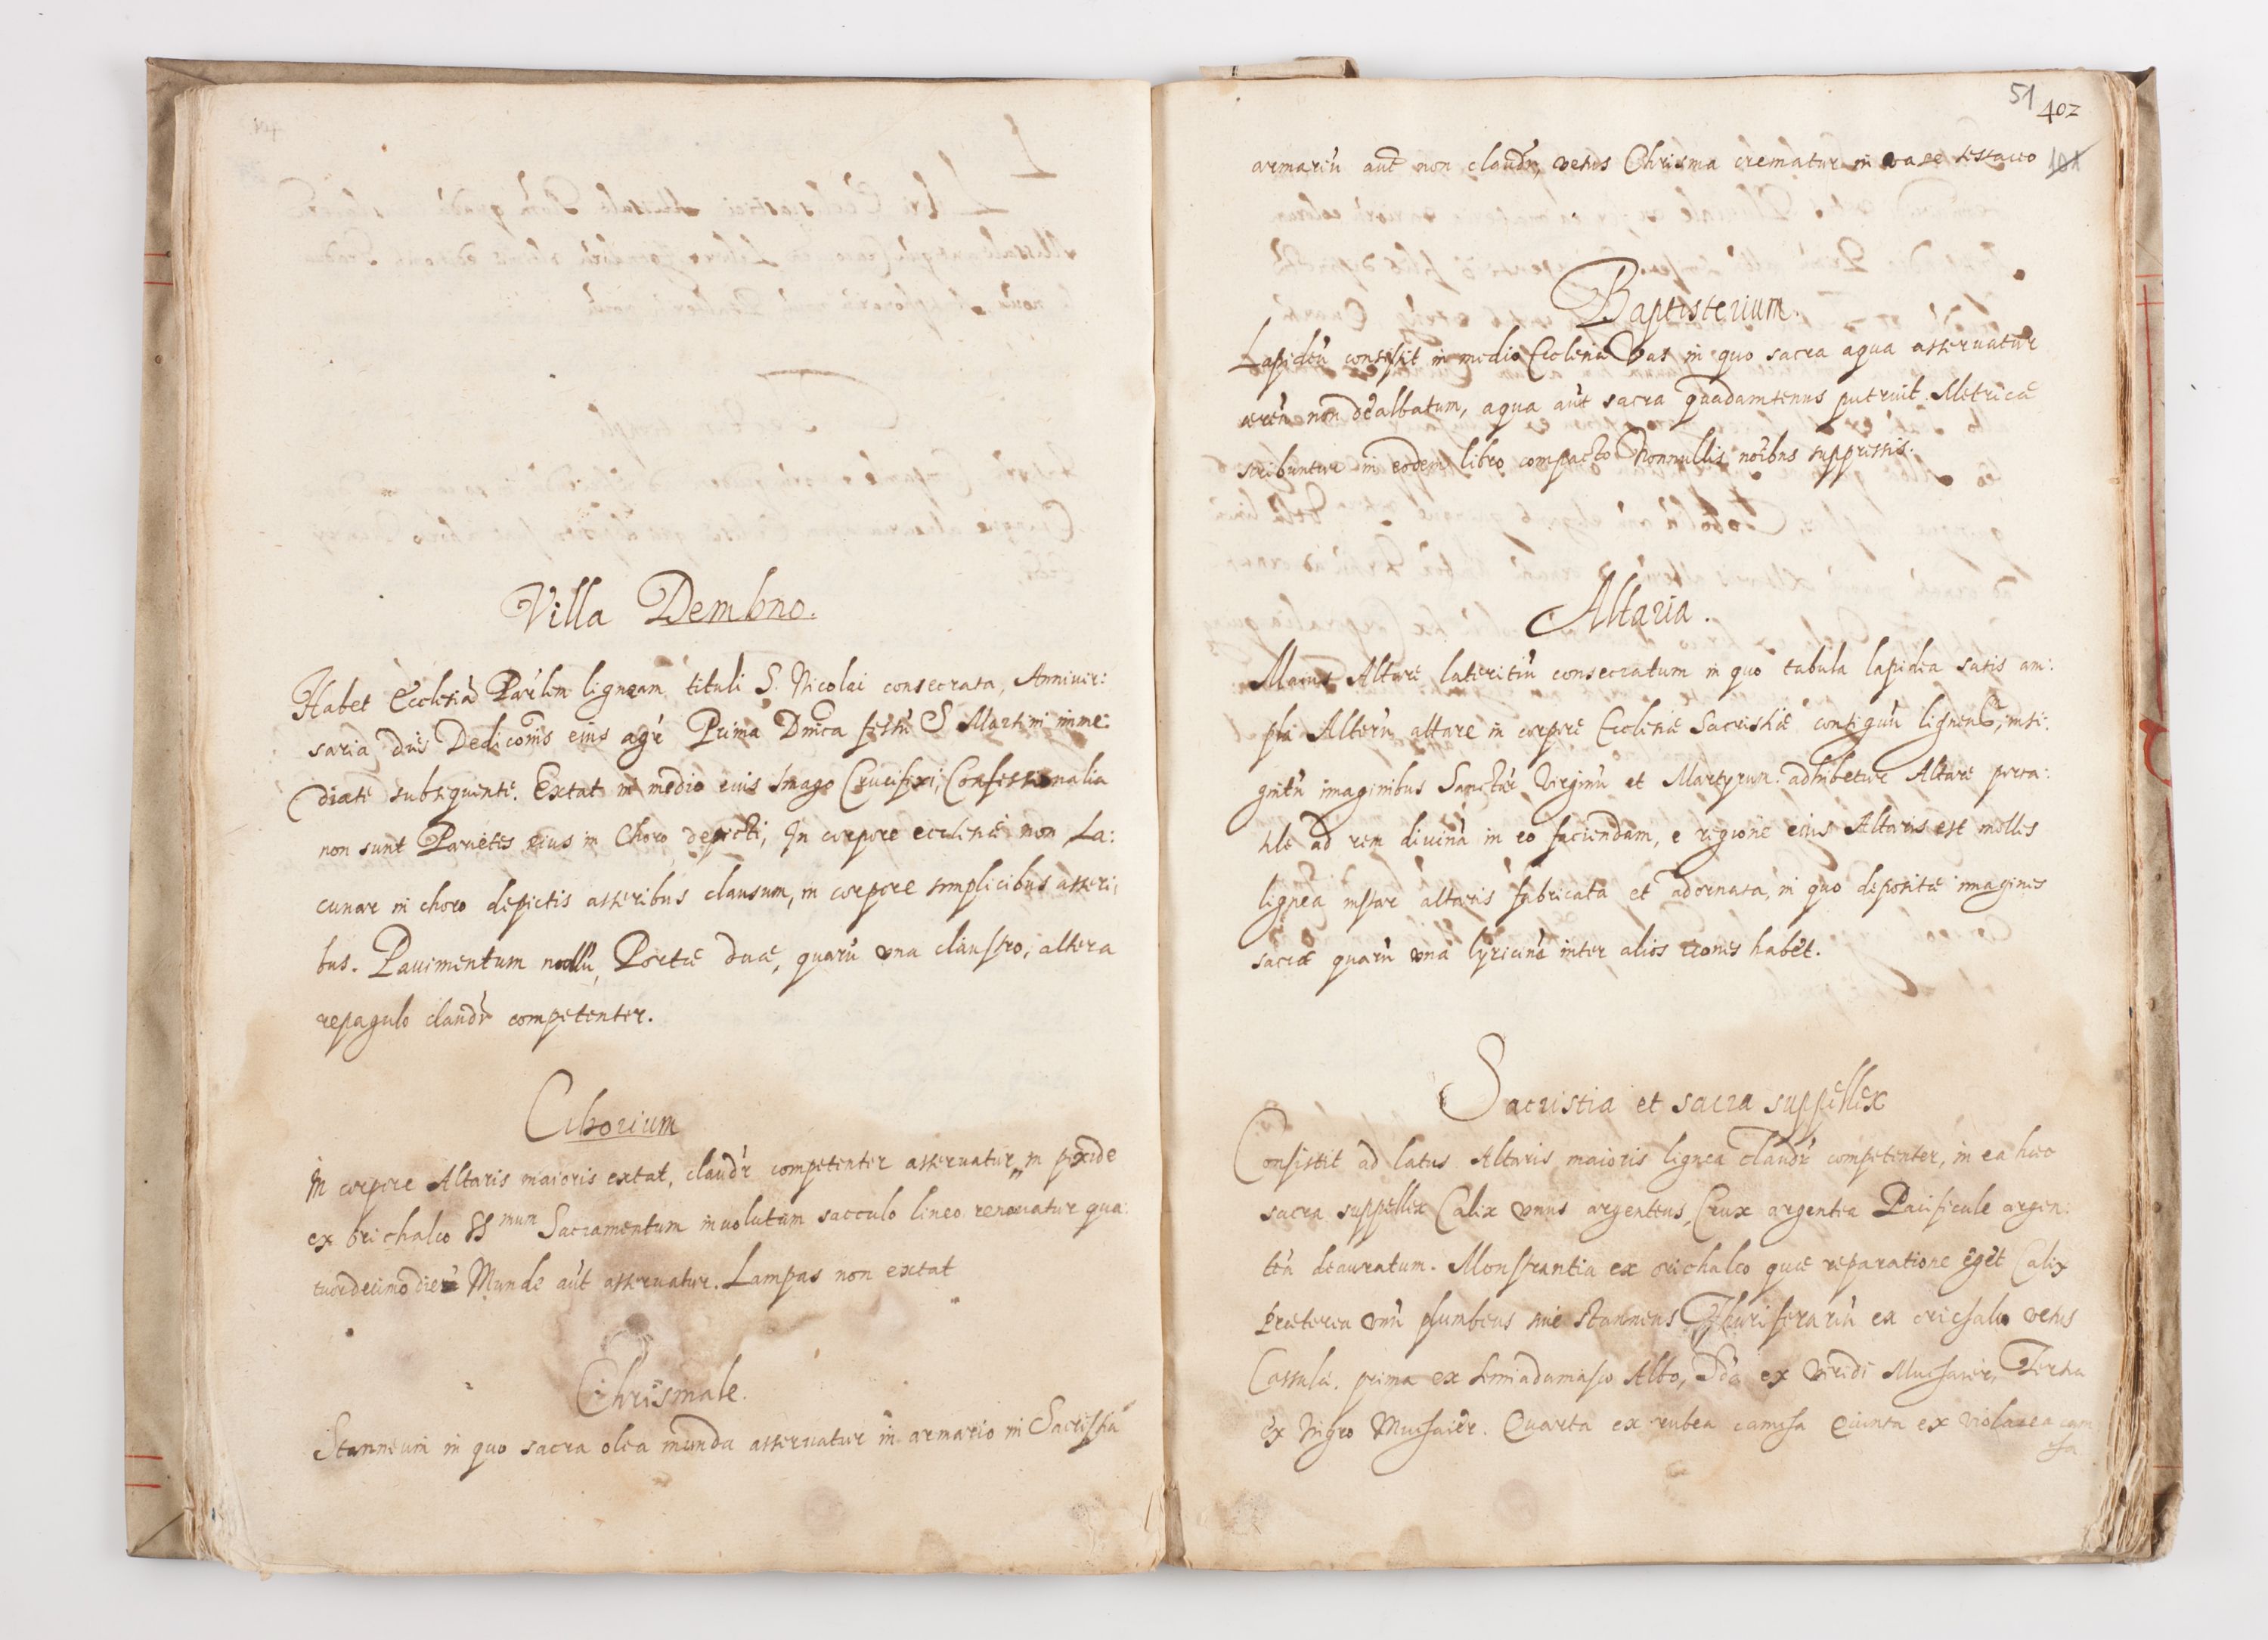 Villa Dembno.
Habet Ecclesiã Parłem ligneam tituli S. Nicolai consecrata, Anniver:
saria dies Dedicõnis eius agr̃ Prima Dnica festũ S Martini imme:
diatè subsequente. Extat in medio eius Imago Crucifixi, Confessionalia
non sunt Parietes eius in Choro depicti, In corpore ecclesiæ non La:
cunar in choro depictis asseribus clausum, in corpore simplicibus asseri:
bus. Pavimentum nullũ, Portæ duæ, quarũ una claustro, altera
repagulo claudr̃ competenter.
Ciborium
In corpore Altaris maioris extat, claudr̃ competenter asservatur in pixide
ex orichalco SSmum Sacramentum involutum sacculo lineo renovatur qua:
tuordecimo die Munde aũt asservatur. Lampas non extat
Chrismale.
Stanneum in quo sacra olea munda asservatur in armario in Sacristia
51 402
armariũ aut̃ non claudr̃, vetus Chrisma crematur in vase testaceo 101
Baptisterium.
Lapideũ consistit in medio Ecclesiæ Vas in quo sacra aqua asservatur
æreũ non dealbatum, aqua aũt sacra quadamtenus putruit. Metricæ
scribuntur in eodem libro compacto Nonnullis noĩbus suppressis.
Altaria.
Maius Altare lateritiũ consecratum in quo tabula lapidea satis am:
pla Alterũ altare in corpore Ecclesiæ Sacristiæ contiguũ ligneũ, insi:
gnitũ imaginibus Sanctar̃ Virginũ et Martyrum. adhibetur Altare porta:
tile ad rem divinã in eo faciendam, e regione eius Altaris est molles
lignea instar altaris fabricata et adornata, in quo depositæ imagines
sacræ quarũ una lyricinẽ inter alios icones habet.
Sacristia et sacra suppellex
Consistit ad latus Altaris maioris lignea claudr̃ competenter, in ea hæc
sacra suppellex Calix unus argenteus, Crux argentea Pacificale argen:
teũ deauratum. Monstrantia ex orichalco quæ reparatione eget Calix
Præterea unũ plumbeus sive stanneus Thuriferariũ ex orichalco vetus
Cassulæ. prima ex Semiadamasco Albo, 2da ex viridi Muchaier, Tertia
ex Nigro Muchaier. Quarta ex rubea camcha Quinta ex violacea cam
cha